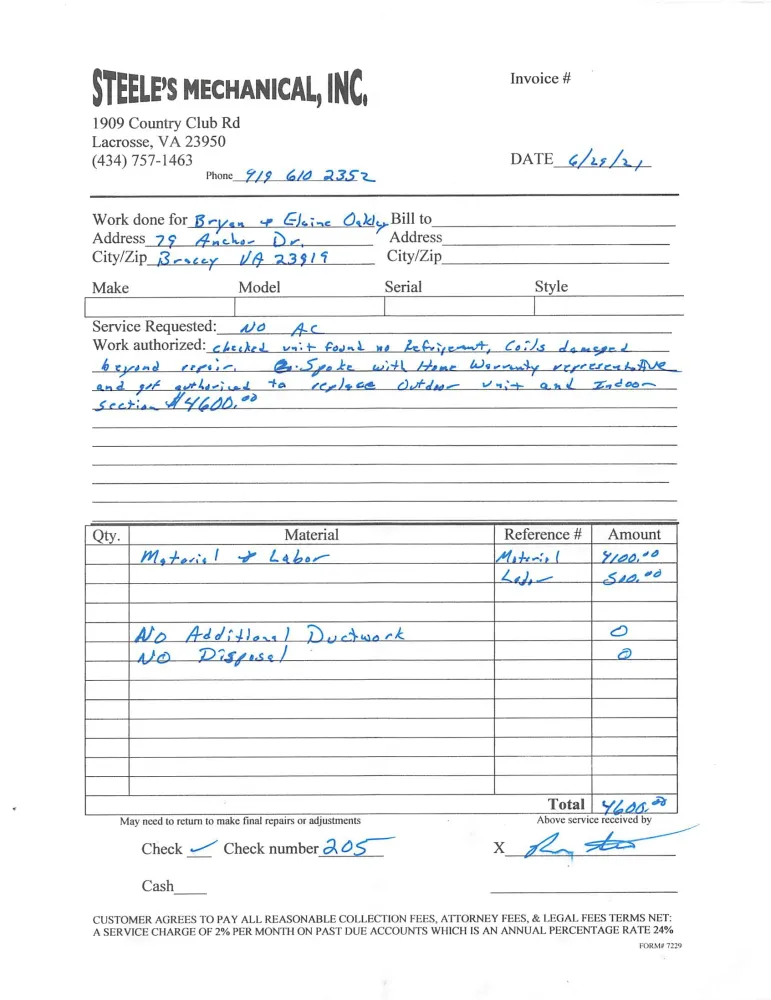 STEELE'S MECHANICAL, INC.
Invoice #
1909 Country Club Rd
Lacrosse, VA 23950
(434) 757-1463
DATE 6/25/21
Phone 919 610 2352
Work done for Bryan & Elaine Oakly Bill to
Address 79 Anchor Dr. Address
City/Zip Bracey VA 23919 City/Zip
Make Model Serial Style
Service Requested: NO AC
Work authorized: checked unit found no Refrigerant, Coils damaged
beyond repair. Spoke with Home Warranty representative
and got authorized to replace Outdoor unit and Indoor
section $4600.00
Qty. Material Reference # Amount
Material & Labor Material 4100.00
Labor 500.00
No Additional Ductwork 0
NO Disposal 0
Total 4600.00
May need to return to make final repairs or adjustments Above service received by
Check ✓ Check number 205 X
Cash
CUSTOMER AGREES TO PAY ALL REASONABLE COLLECTION FEES, ATTORNEY FEES, & LEGAL FEES TERMS NET:
A SERVICE CHARGE OF 2% PER MONTH ON PAST DUE ACCOUNTS WHICH IS AN ANNUAL PERCENTAGE RATE 24%
FORM# 7229